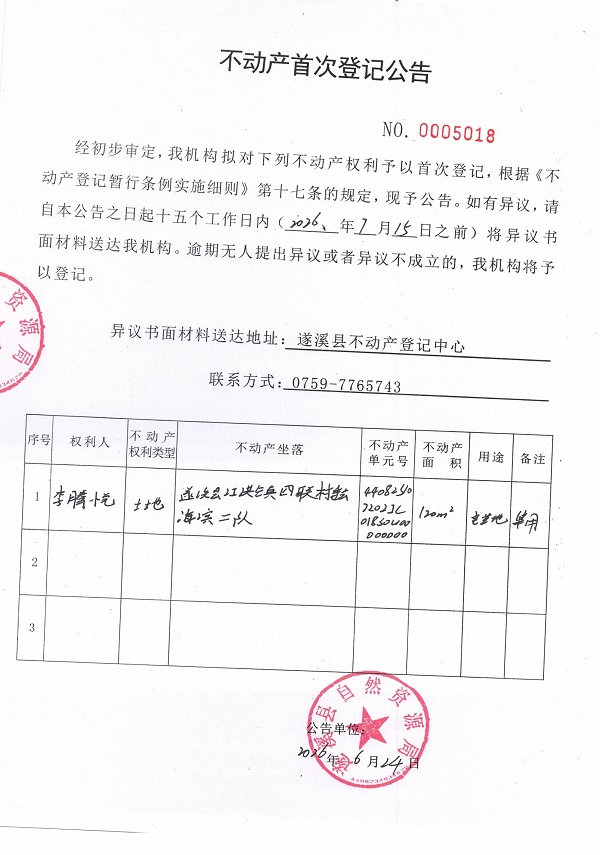 不动产首次登记公告
NO. 0005018
经初步审定，我机构拟对下列不动产权利予以首次登记，根据《不
动产登记暂行条例实施细则》第十七条的规定，现予公告。如有异议，请
自本公告之日起十五个工作日内（2026、年7月15日之前）将异议书
面材料送达我机构。逾期无人提出异议或者异议不成立的，我机构将予
以登记。
资源局
异议书面材料送达地址：遂溪县不动产登记中心
联系方式：0759-7765743
序号 权利人 不动产权利类型 不动产坐落 不动产单元号 不动产面积 用途 备注
1 李腾悦 土地 遂溪县江洪镇四联村 海滨二队 120m² 宅基地 单用
2
3
遂溪县自然资源局
公告单位：
2026年6月24日